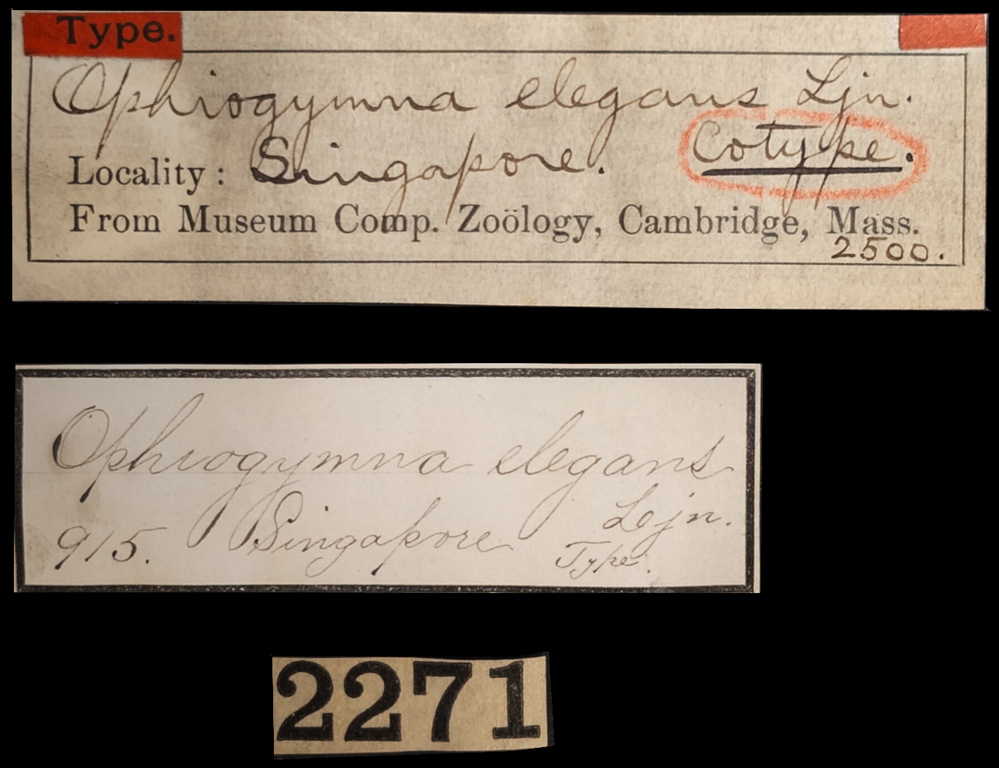 Type.
Ophiogymna elegans Ljn.
Locality: Singapore. Cotype.
From Museum Comp. Zoölogy, Cambridge, Mass.
2500.
Ophiogymna elegans
Lojn.
915. Singapore
Type.
2271